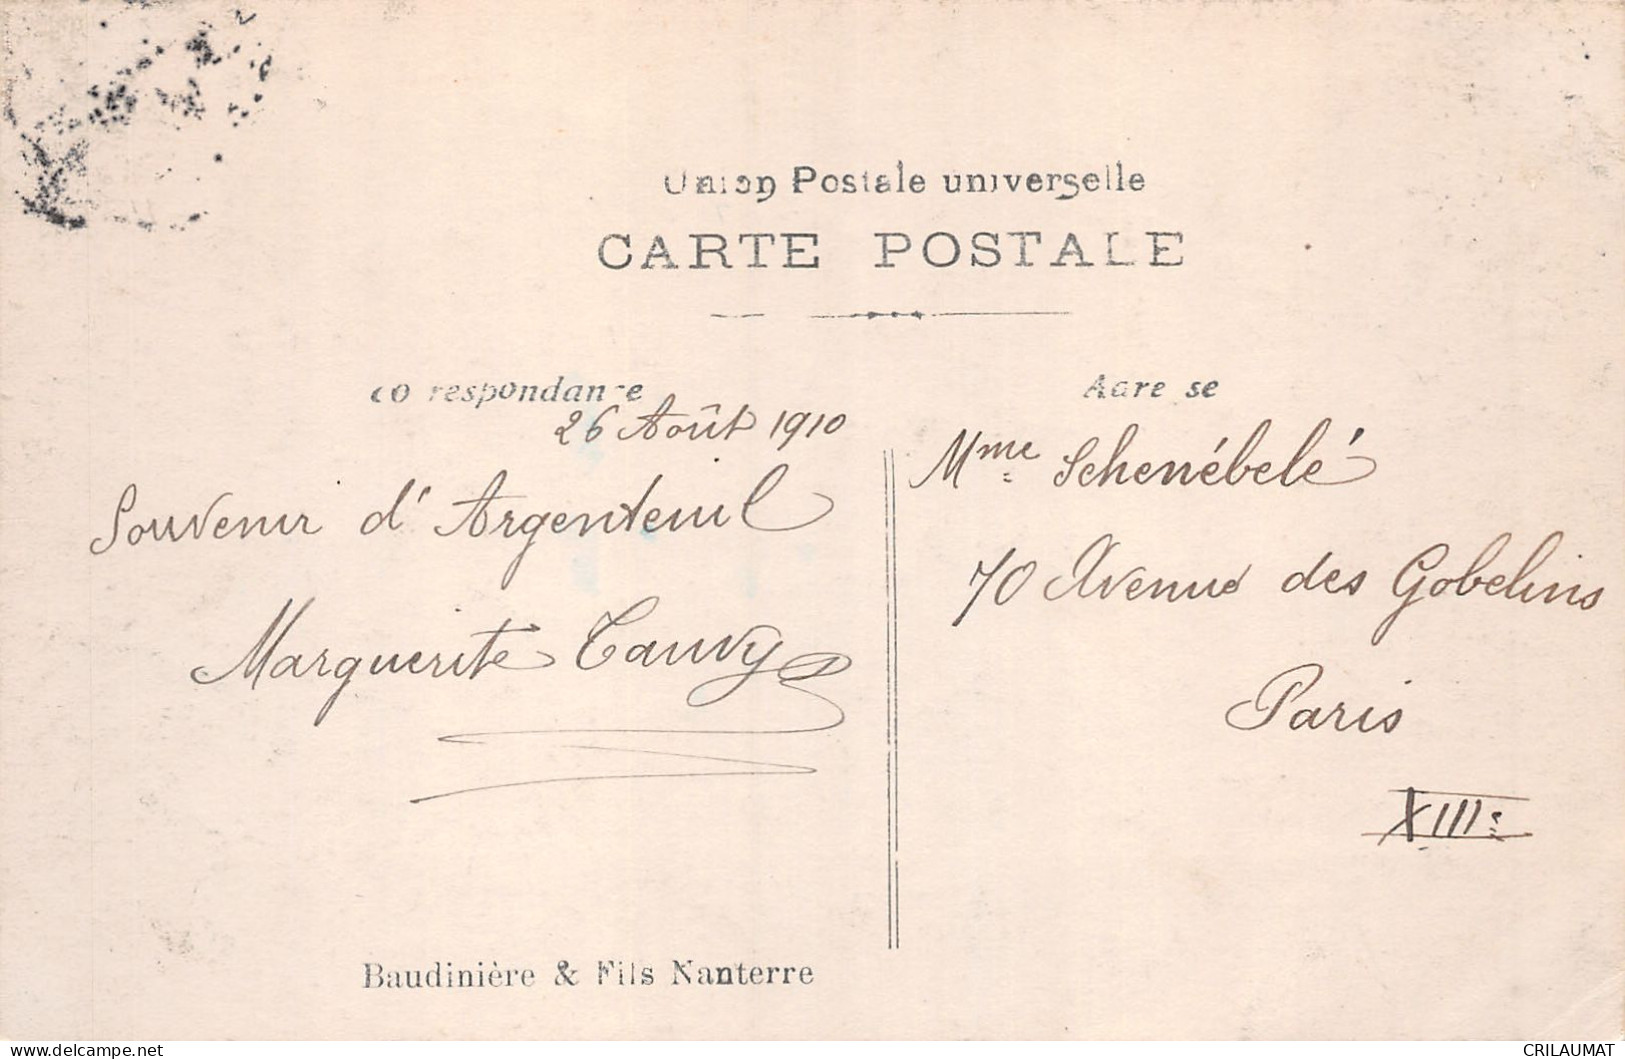 Union Postale universelle
CARTE POSTALE
Correspondance
Adresse
26 Août 1910
Souvenir d'Argenteuil
Marguerite Tauvy
Mme Schenébelé
70 Avenue des Gobelins
Paris
XIIIe
Baudinière & Fils Nanterre
delcampe.net
CRILAUMAT